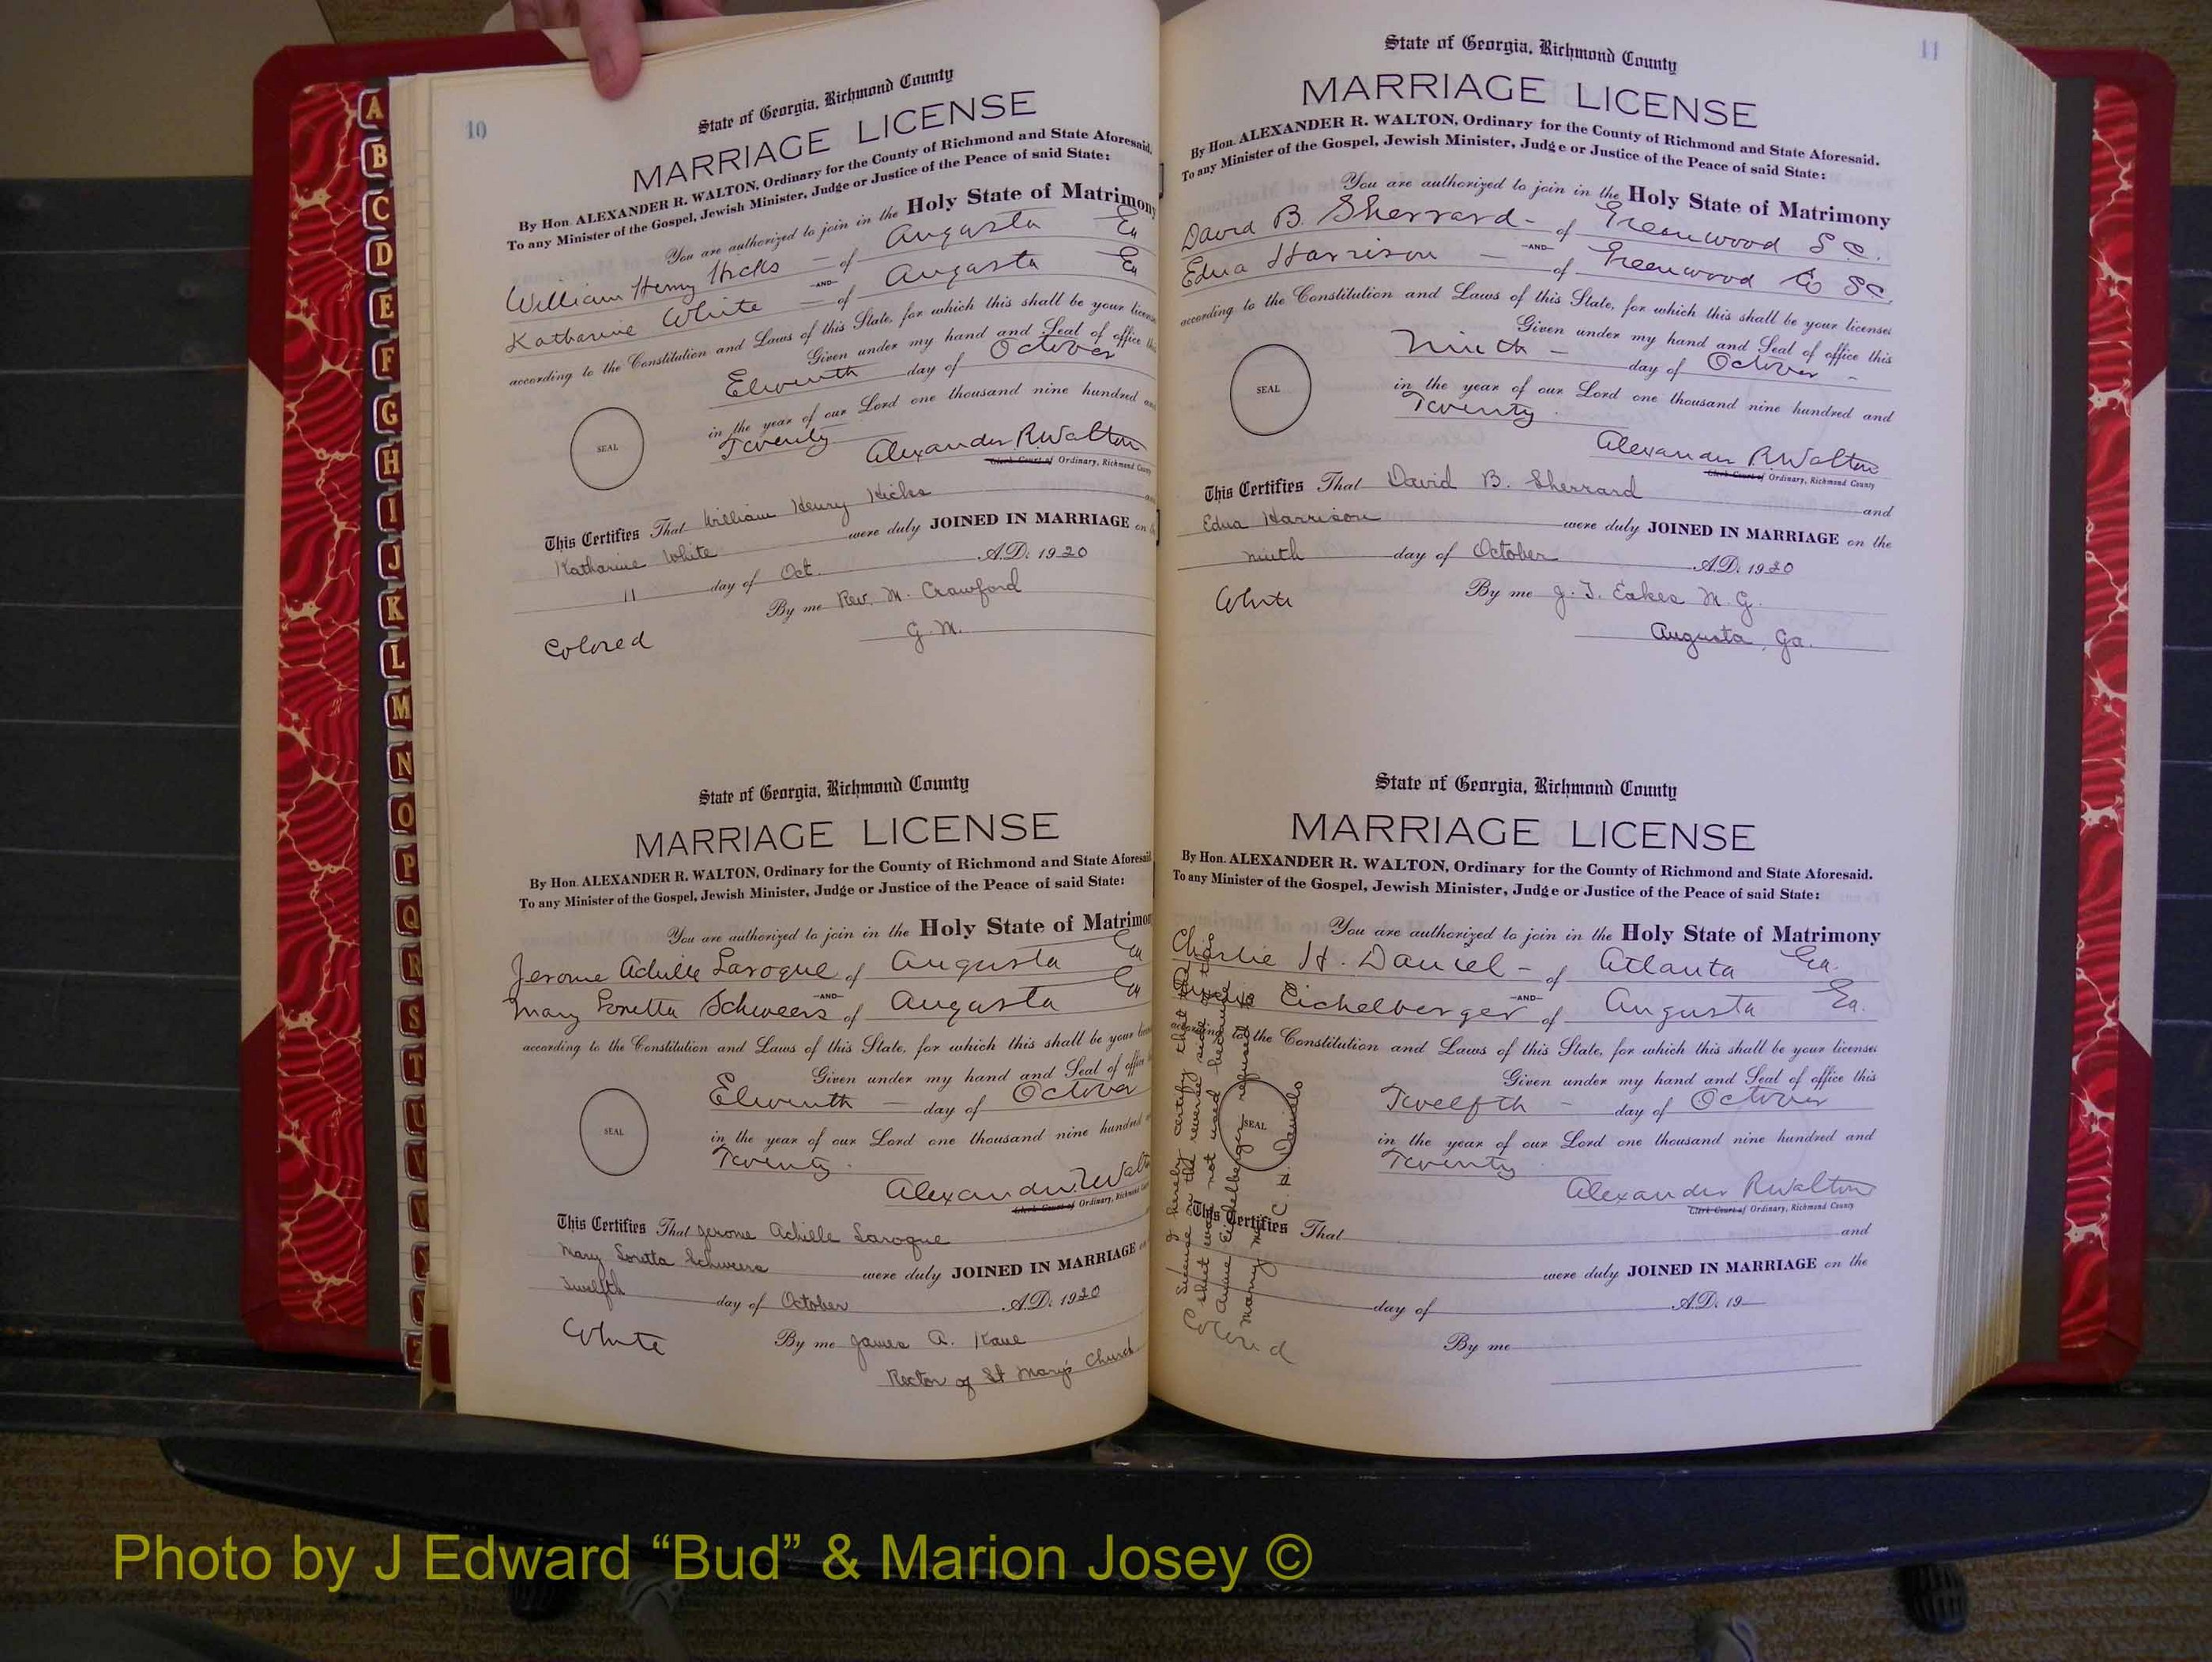 A
B
C
D
E
F
G
H
I
J
K
L
M
N
O
P
Q
R
S
T
U
V
W
10
State of Georgia, Richmond County
MARRIAGE LICENSE
By Hon. ALEXANDER R. WALTON, Ordinary for the County of Richmond and State Aforesaid.
To any Minister of the Gospel, Jewish Minister, Judge or Justice of the Peace of said State:
You are authorized to join in the Holy State of Matrimony
William Henry Hicks - of Augusta Ga
-AND-
Katharine White - of Augusta Ga
according to the Constitution and Laws of this State, for which this shall be your license
Given under my hand and Seal of office this
Eleventh day of October
in the year of our Lord one thousand nine hundred and
Twenty
SEAL
Alexander R. Walton
Clerk Court of Ordinary, Richmond County
This Certifies That William Henry Hicks and
Katharine White were duly JOINED IN MARRIAGE on the
11 day of Oct. A.D. 1920
By me Rev. M. Crawford
G. M.
Colored
State of Georgia, Richmond County
MARRIAGE LICENSE
By Hon. ALEXANDER R. WALTON, Ordinary for the County of Richmond and State Aforesaid
To any Minister of the Gospel, Jewish Minister, Judge or Justice of the Peace of said State:
You are authorized to join in the Holy State of Matrimony
Jerome Achille Laroque of Augusta Ga
-AND-
Mary Loretta Schweers of Augusta Ga
according to the Constitution and Laws of this State, for which this shall be your license
Given under my hand and Seal of office
Eleventh - day of October
in the year of our Lord one thousand nine hundred
Twenty.
SEAL
Alexander R. Walton
Clerk Court of Ordinary, Richmond
This Certifies That Jerome Achille Laroque
Mary Loretta Schweers were duly JOINED IN MARRIAGE on
Twelfth day of October A.D. 1920
White
By me James A. Kane
Rector of St Mary's Church
11
State of Georgia, Richmond County
MARRIAGE LICENSE
By Hon. ALEXANDER R. WALTON, Ordinary for the County of Richmond and State Aforesaid.
To any Minister of the Gospel, Jewish Minister, Judge or Justice of the Peace of said State:
You are authorized to join in the Holy State of Matrimony
David B. Sherrard - of Greenwood S C.
-AND-
Edna Harrison - of Greenwood Co SC.
according to the Constitution and Laws of this State, for which this shall be your license:
Given under my hand and Seal of office this
Ninth - day of October -
in the year of our Lord one thousand nine hundred and
Twenty.
SEAL
Alexander R. Walton
Clerk Court of Ordinary, Richmond County
This Certifies That David B. Sherrard and
Edna Harrison were duly JOINED IN MARRIAGE on the
ninth day of October A.D. 1920
White
By me J. T. Eakes M. G.
Augusta, Ga.
State of Georgia, Richmond County
MARRIAGE LICENSE
By Hon. ALEXANDER R. WALTON, Ordinary for the County of Richmond and State Aforesaid.
To any Minister of the Gospel, Jewish Minister, Judge or Justice of the Peace of said State:
You are authorized to join in the Holy State of Matrimony
Charlie H. Daniel - of Atlanta Ga.
-AND-
Eichelberger of Augusta Ga.
according to the Constitution and Laws of this State, for which this shall be your license:
Given under my hand and Seal of office this
Twelfth - day of October
in the year of our Lord one thousand nine hundred and
Twenty
SEAL
Alexander R. Walton
Clerk Court of Ordinary, Richmond County
This Certifies That and
were duly JOINED IN MARRIAGE on the
day of A.D. 19
By me
I hereby certify that the
license on the reverse side
sheet was not used because
Annie Eichelberger refused to
marry me C. H. Daniels
Colored
Photo by J Edward “Bud” & Marion Josey ©